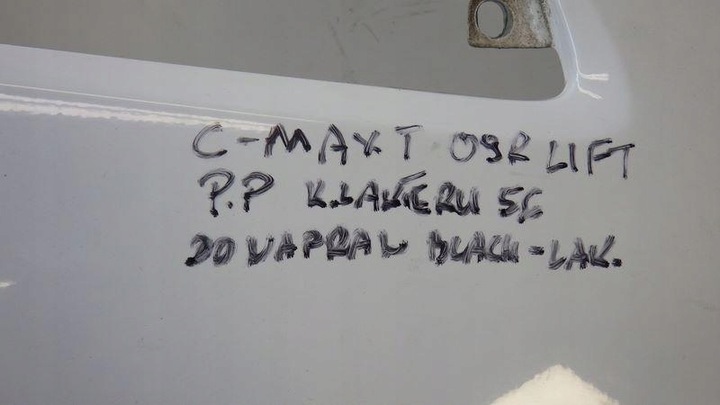 C-MAX I 09R LIFT
P.P K.LAKIERU 5G
DO NAPRAW BLACH-LAK.